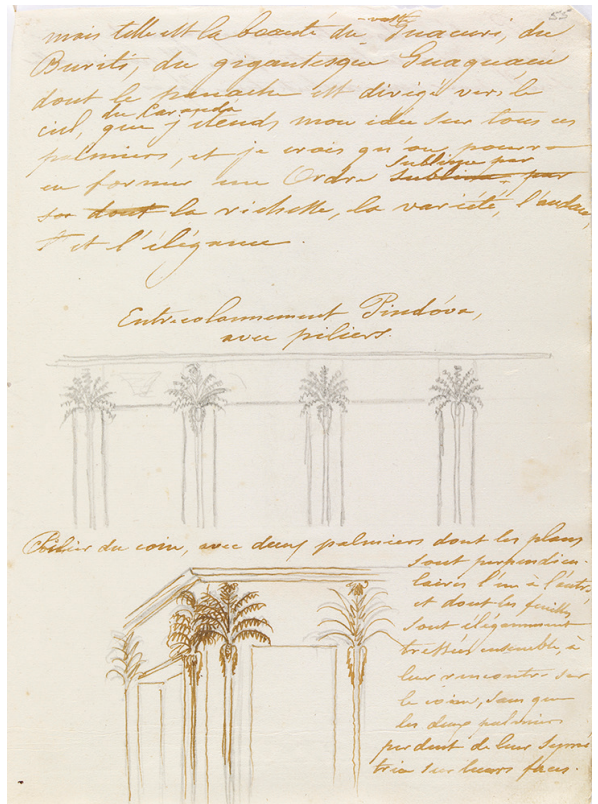 55
mais telle est la beauté du vaste Guacuri, du
Buriti, du gigantesque Guaguaçu
dont le panache est dirigé vers le
ciel, du Caranda que j'étends mon idée sur tous ces
palmiers, et je crois qu'on pourra
en former un Ordre sublime par sublime, par
sa dont la richesse, la variété, l'audace,
et l'élégance.
Entrecolonnement Pindóva,
avec piliers.
Pilier du coin, avec deux palmiers dont les plans
sont perpendicu-
laires l'un à l'autre,
et dont les feuilles
sont élégamment
tressées ensemble, à
leur rencontre sur
le coin, sans que
les deux palmiers
perdent de leur symé
trie sur leurs faces.